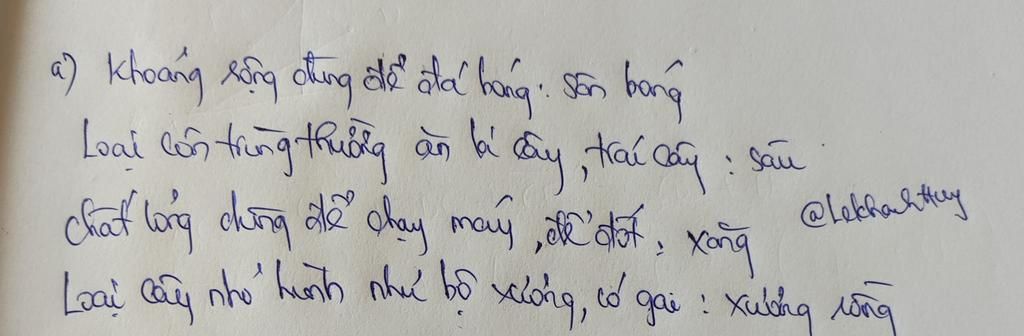 a) Khoảng rộng dùng để đá bóng: sân bóng
Loại côn trùng thường ăn lá cây, trái cây: sâu
Chất lỏng dùng để chạy máy, để đốt: xăng
@Lekhanhhuy
Loại cây nhỏ hình như bộ xương, có gai: xương rồng